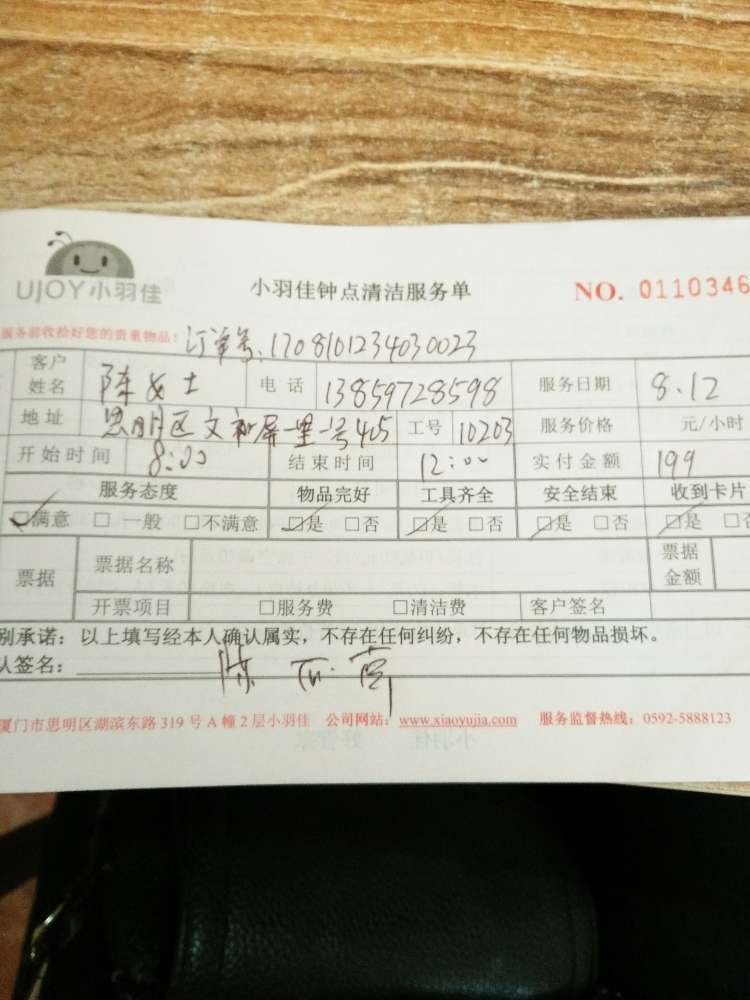 UJOY小羽佳 小羽佳钟点清洁服务单 NO. 0110346
服务前收拾好您的贵重物品! 订单号:1708101234030023
客户姓名 陈女士 电话 13859728598 服务日期 8.12
地址 思明区文和屏一里一号405 工号 10203 服务价格 元/小时
开始时间 8:00 结束时间 12:00 实付金额 199
服务态度 物品完好 工具齐全 安全结束 收到卡片
☑满意 □一般 □不满意 ☑是 □否 ☑是 □否 ☑是 □否 ☑是 □否
票据 票据名称 票据金额
开票项目 □服务费 □清洁费 客户签名
别承诺:以上填写经本人确认属实,不存在任何纠纷,不存在任何物品损坏。
人签名: 陈
厦门市思明区湖滨东路 319 号 A 幢 2 层小羽佳 公司网站:www.xiaoyujia.com 服务监督热线:0592-5888123